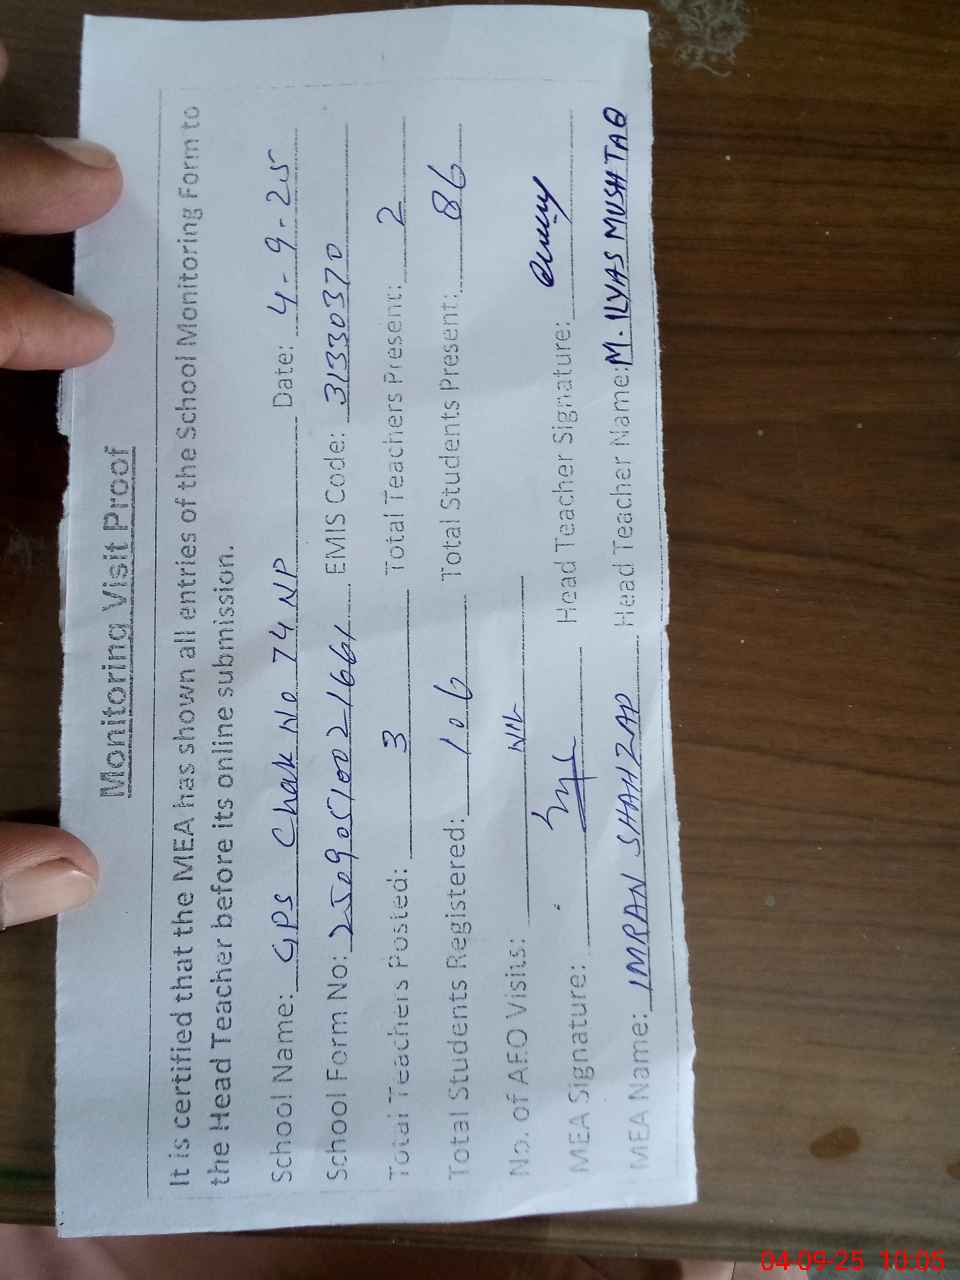 Monitoring Visit Proof
It is certified that the MEA has shown all entries of the School Monitoring Form to
the Head Teacher before its online submission.
School Name: GPS Chak No 74 NP Date: 4-9-25
School Form No: 2509051002166 EMIS Code: 31330370
Total Teachers Posted: 3 Total Teachers Present: 2
Total Students Registered: 106 Total Students Present: 86
No. of AEO Visits: NIL
MEA Signature: Head Teacher Signature:
MEA Name: IMRAN SHAHZAD Head Teacher Name: M. ILYAS MUSHTAQ
04-09-25 10:05